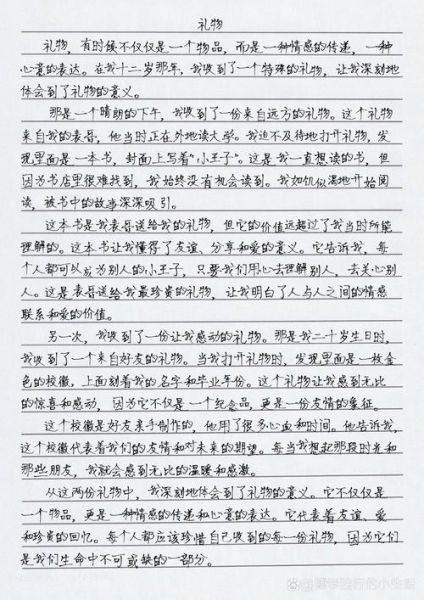 礼物
礼物，有时候不仅仅是一个物品，而是一种情感的传递，一种
心意的表达。在我十二岁那年，我收到了一个特殊的礼物，让我深刻地
体会到了礼物的意义。
那是一个晴朗的下午，我收到了一份来自远方的礼物。这个礼物
来自我的表哥，他当时正在外地读大学。我迫不及待地打开礼物，发
现里面是一本书，封面上写着“小王子”。这是我一直想读的书，但
因为书店里很难找到，我始终没有机会读到。我如饥似渴地开始阅
读，被书中的故事深深吸引。
这本书是我表哥送给我的礼物，但它的价值远超过了我当时所能
理解的。这本书让我懂得了友谊、分享和爱的意义。它告诉我，每
个人都可以成为别人的小王子，只要我们用心去理解别人，去关心别
人。这是表哥送给我最珍贵的礼物，让我明白了人与人之间的情感
联系和爱的价值。
另一次，我收到了一份让我感动的礼物。那是我二十岁生日时，
我收到了一个来自好友的礼物。当我打开礼物时，发现里面是一枚金
色的校徽，上面刻着我的名字和毕业年份。这个礼物让我感到无比
的惊喜和感动，因为它不仅是一个纪念品，更是一份友情的象征。
这个校徽是好友亲手制作的，他用了很多心血和时间。他告诉我，
这个校徽代表着我们的友情和对未来的期望。每当我想起那段时光和
那些朋友，我就会感到无比的温暖和感激。
从这两份礼物中，我深刻地体会到了礼物的意义。它不仅仅是
一个物品，更是一种情感的传递和心意的表达。它代表着友谊、爱
和珍贵的回忆。每个人都应该珍惜自己收到的每一份礼物，因为它们
是我们生命中不可或缺的一部分。